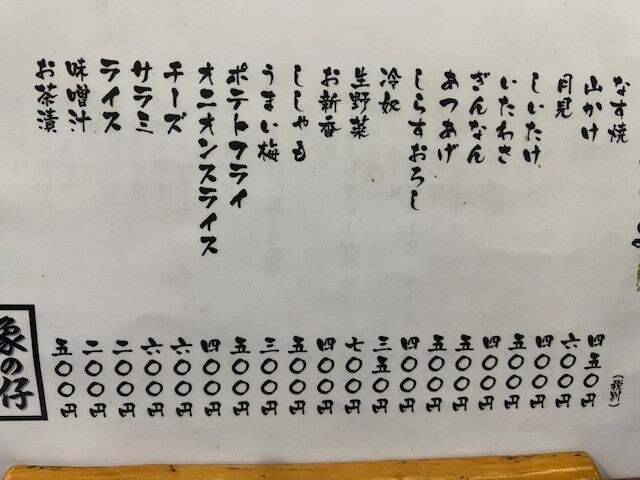 なす焼 四五〇円
(税別)
山かけ 六〇〇円
月見 四〇〇円
しいたけ 五〇〇円
いたわさ 四〇〇円
ぎんなん 五〇〇円
あつあげ 五〇〇円
しらすおろし 四〇〇円
冷奴 三五〇円
生野菜 七〇〇円
お新香 四〇〇円
ししゃも 五〇〇円
うまい梅 三〇〇円
ポテトフライ 五〇〇円
オニオンスライス 四〇〇円
チーズ 六〇〇円
サラミ 六〇〇円
ライス 二〇〇円
味噌汁 二〇〇円
お茶漬 五〇〇円
象の仔